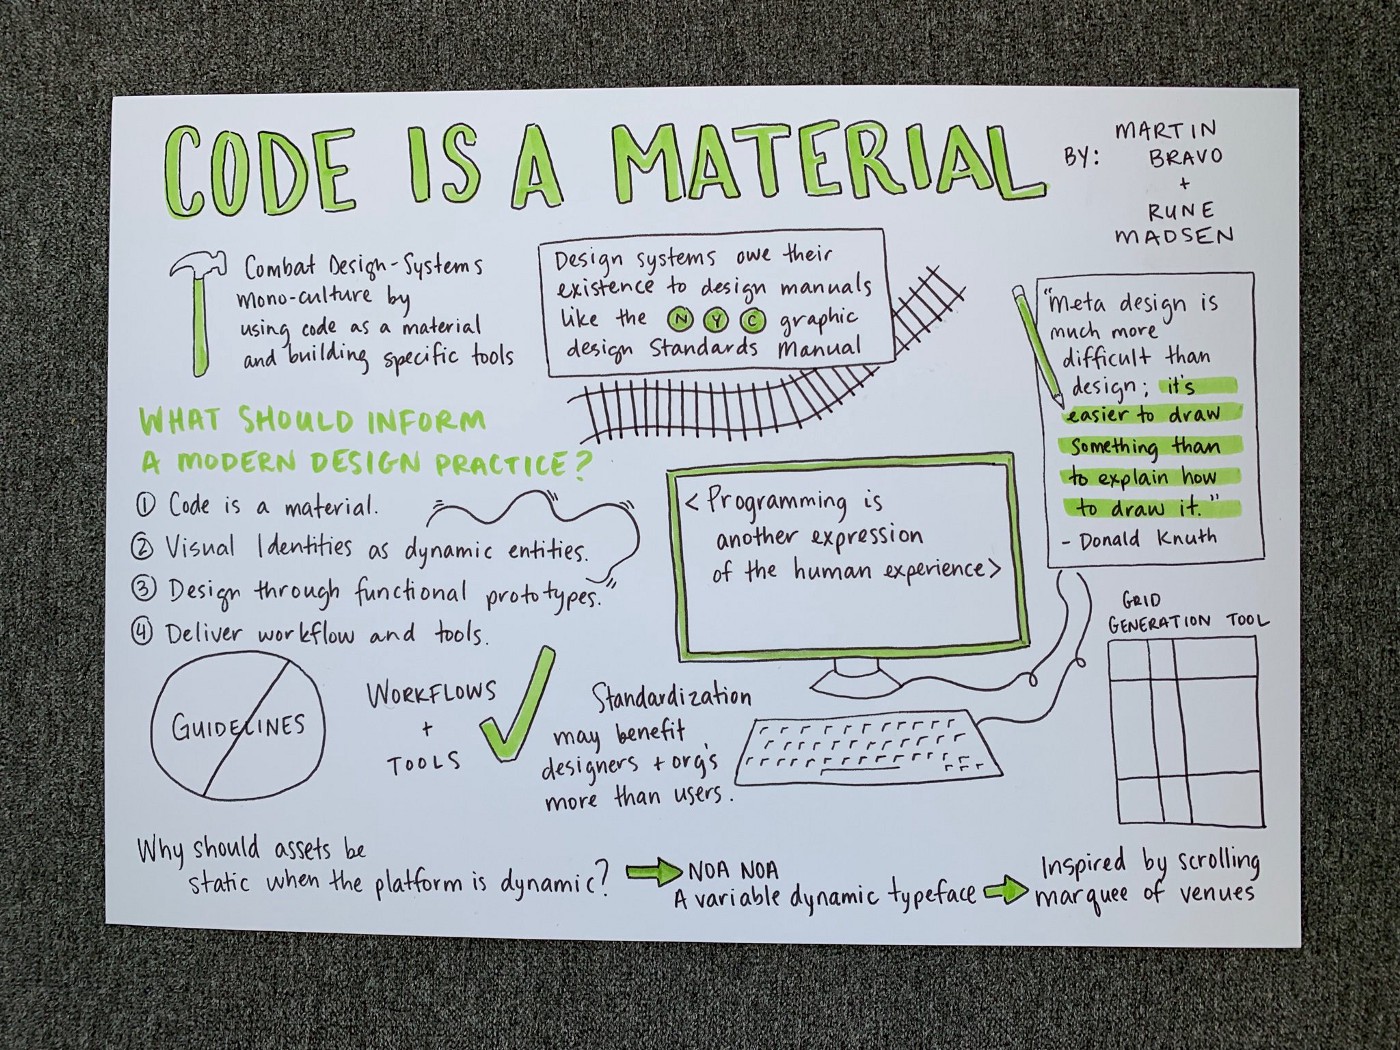 CODE IS A MATERIAL
BY: MARTIN
BRAVO
+
RUNE
MADSEN
Combat Design-Systems
mono-culture by
using code as a material
and building specific tools
Design systems owe their
existence to design manuals
like the N Y C graphic
design Standards Manual
"Meta design is
much more
difficult than
design; it's
easier to draw
something than
to explain how
to draw it."
- Donald Knuth
WHAT SHOULD INFORM
A MODERN DESIGN PRACTICE?
① Code is a material.
② Visual Identities as dynamic entities.
③ Design through functional prototypes.
④ Deliver workflow and tools.
<Programming is
another expression
of the human experience>
GRID
GENERATION TOOL
GUIDELINES
WORKFLOWS
+
TOOLS
Standardization
may benefit
designers + org's
more than users.
Why should assets be
static when the platform is dynamic?
NOA NOA
A variable dynamic typeface
Inspired by scrolling
marquee of venues